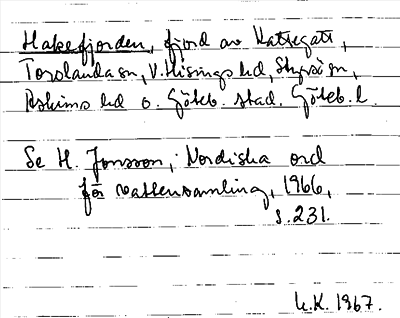 Hakefjorden, fjord av Kattegatt,
Torslanda sn, V. Hisings hd, Styrsö sn,
Askims hd o. Göteb. stad. Göteb. l.
Se H. Jonsson, Nordiska ord
för vattensamling, 1966,
s. 231.
U.K. 1967.